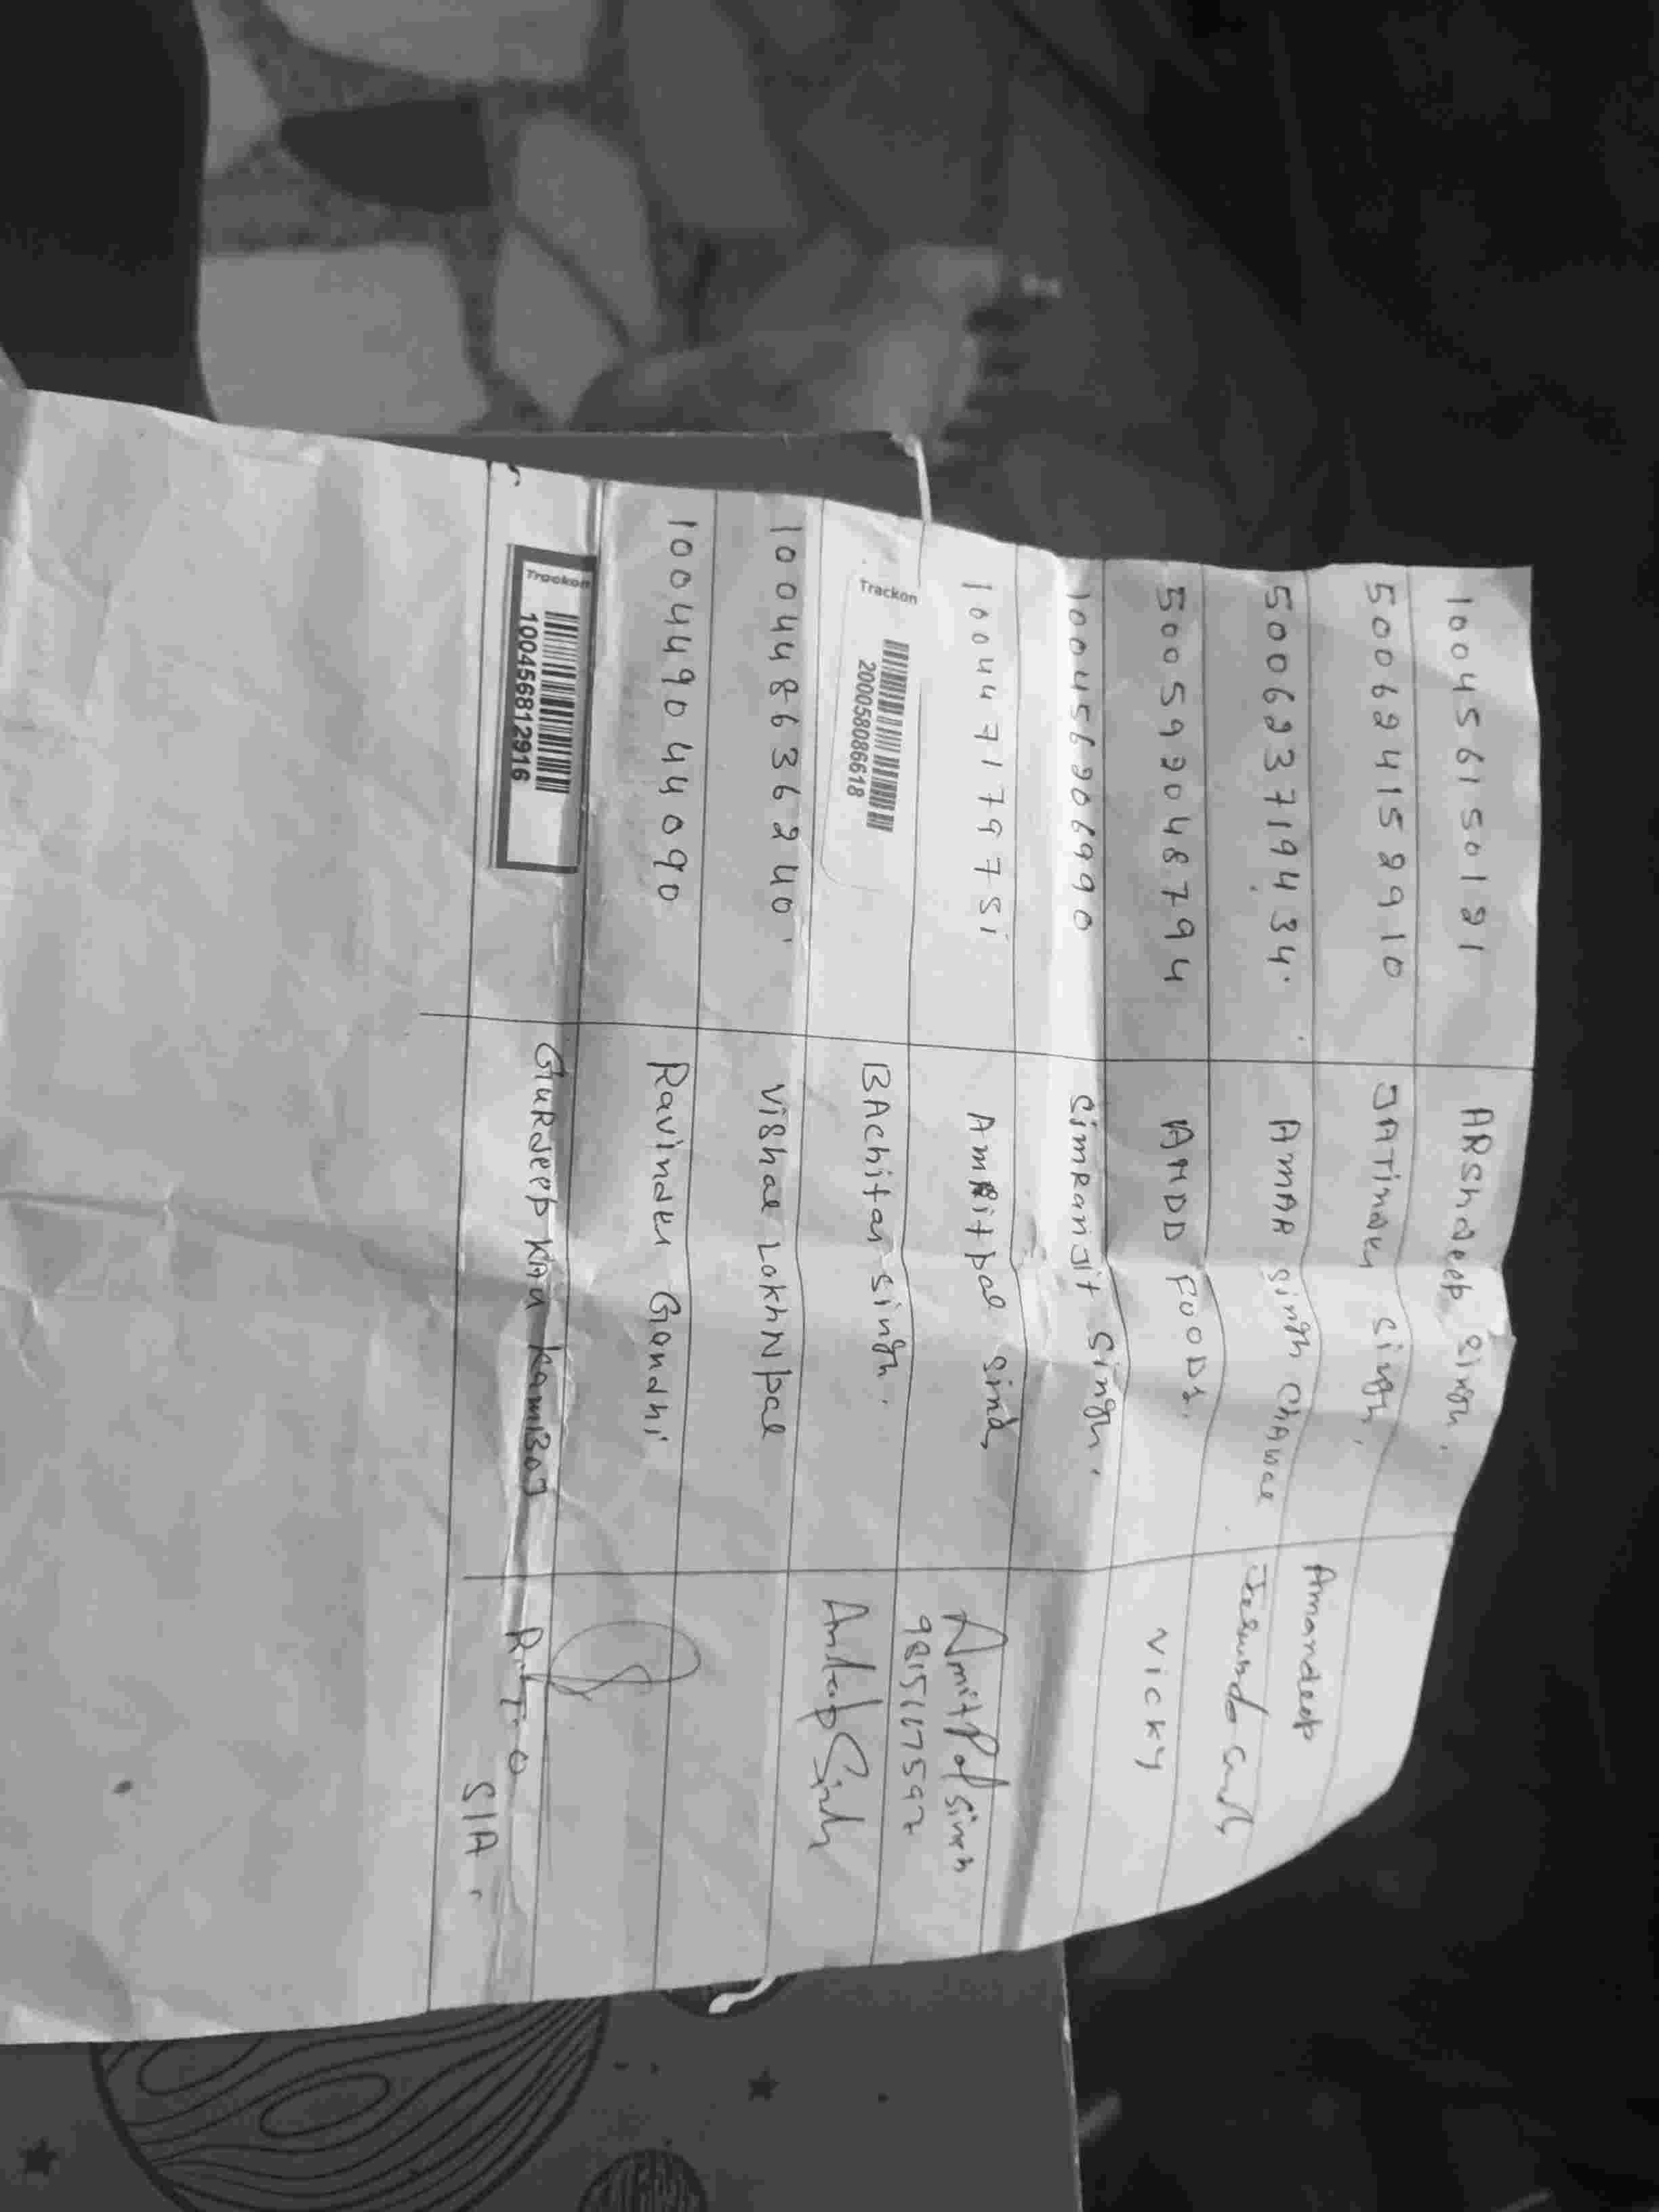 100456150121 ARShdeep Singh.
500624152910 JATinder Singh.
500623719434. AMAR Singh CHAWAL Amandeep
500592048794 AMDD FOODS. Vicky
100456206990 SimRanjit Singh.
100447179751 AmRitpal Singh, Amritpal Singh
9815617597
Trackon
200058086618 BAchitar Singh.
100448636240. Vishal LakhNpal
100449044090 Ravinder Gandhi
Trackon
100456812916 GuRdeep KAu KamBoJ
S/A.